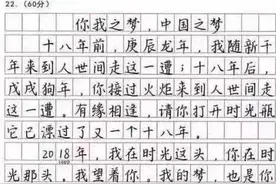 22.(60分)
你我之梦,中国之梦
十八年前,庚辰龙年,我随新千
年来到人世间走这一遭;十八年后,
戊戌狗年,你接过火炬来到人世间走
这一遭。有缘相逢,请你打开时光瓶
它已漂过了又一个十八年。
2018年,我在时光这头,你在时
光那头。我望着你。我的梦,也是你